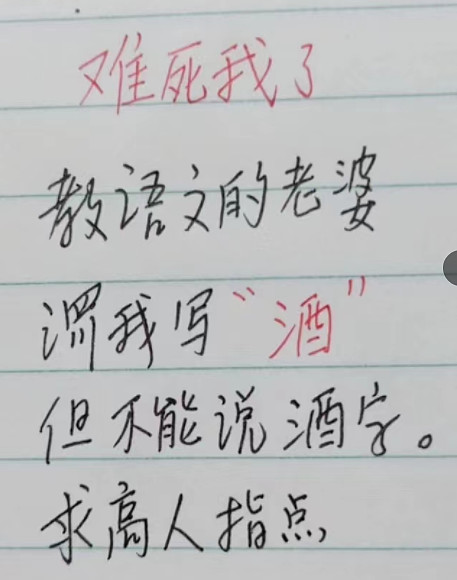 难死我了
教语文的老婆
罚我写“酒”
但不能说酒字。
求高人指点